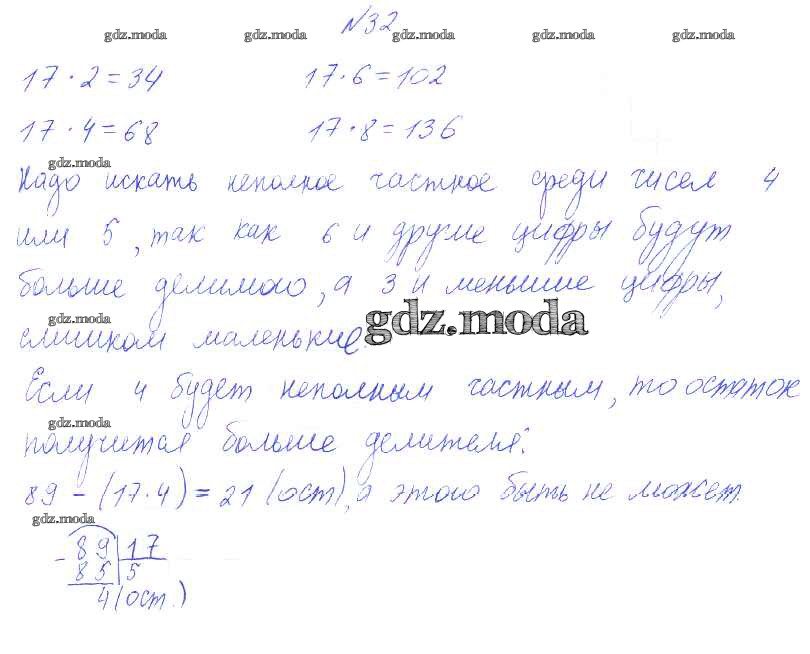 №32
gdz.moda gdz.moda gdz.moda gdz.moda gdz.moda
17·2=34 17·6=102
17·4=68 17·8=136
gdz.moda
Надо искать неполное частное среди чисел 4
или 5, так как 6 и другие цифры будут
больше делимого, а 3 и меньшие цифры,
gdz.moda
слишком маленькие.
gdz.moda
Если 4 будет неполным частным, то остаток
gdz.moda
получится больше делителя:
89-(17·4)=21(ост), а этого быть не может.
gdz.moda
- 89 17
85 5
4(ост.)